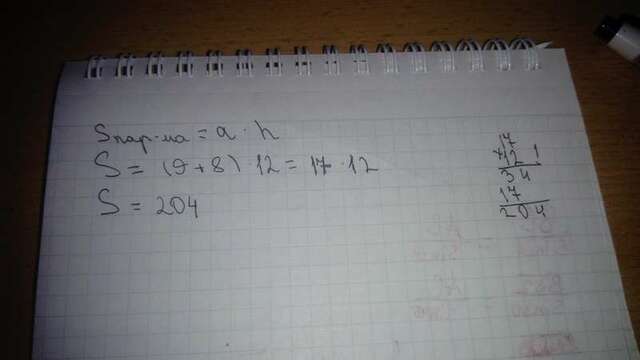 Sпар-ма = a · h
S = (9 + 8) · 12 = 17 · 12
S = 204
17
× 12 1
34
17
204